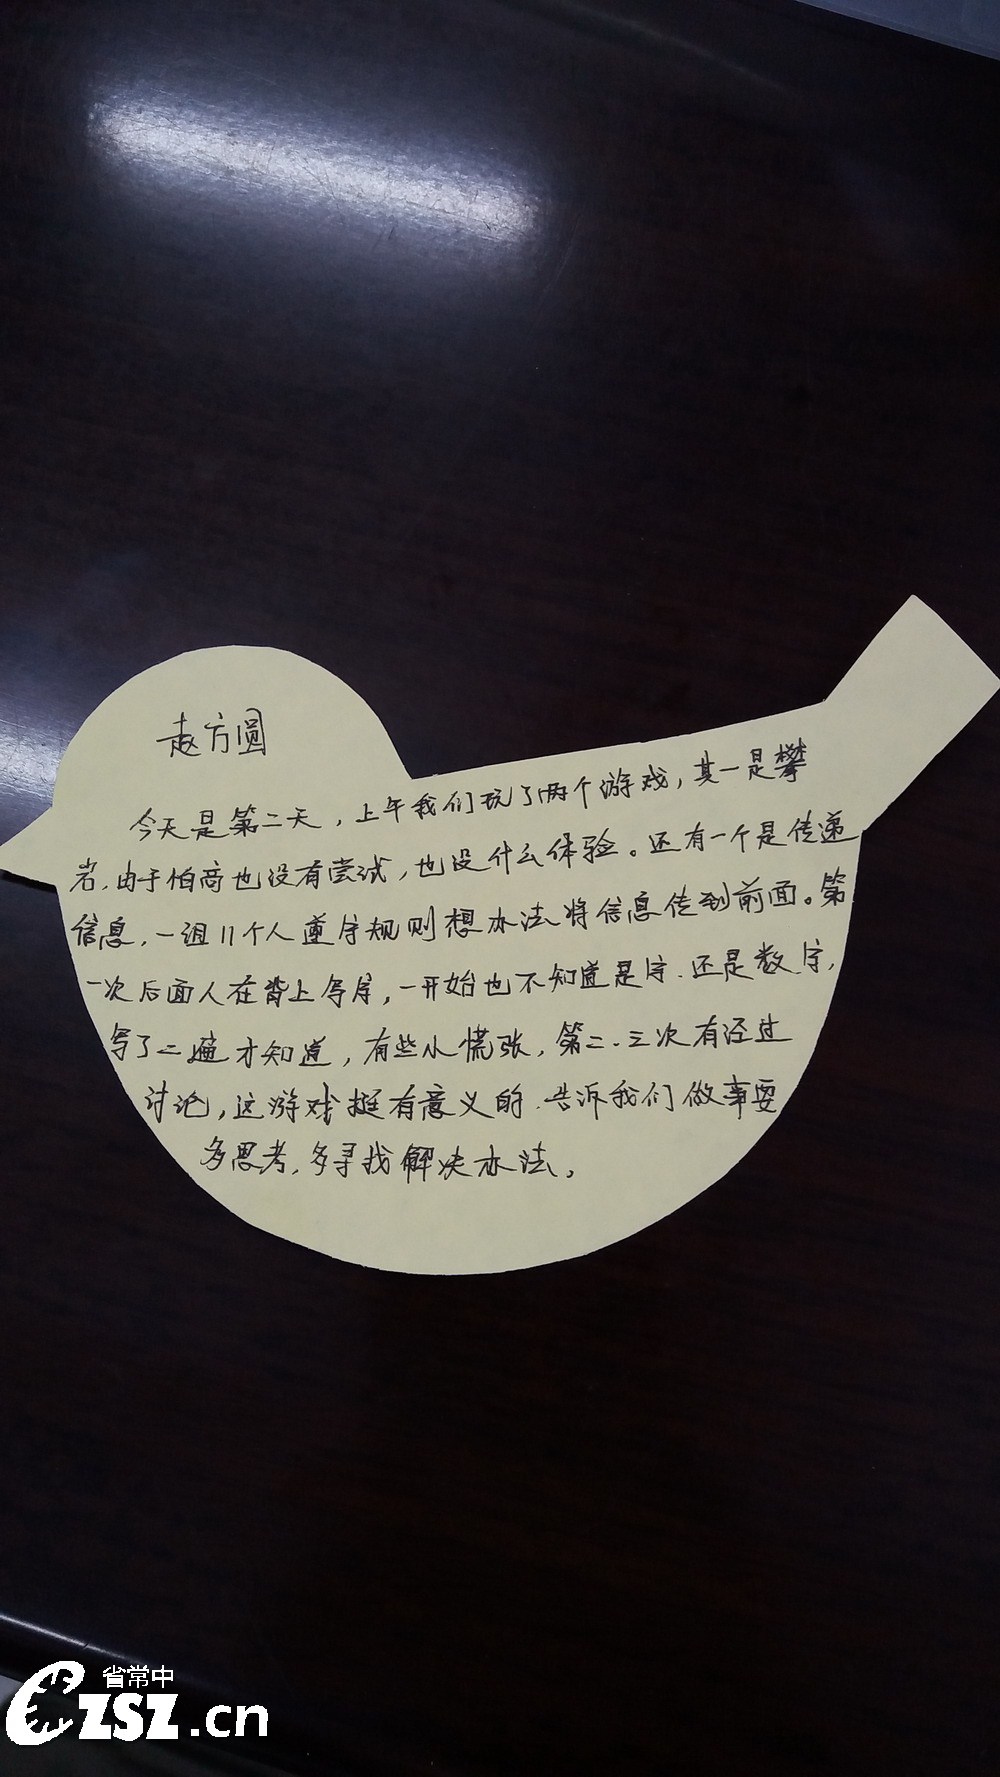 赵方圆
今天是第二天，上午我们玩了两个游戏，其一是攀
岩，由于怕高也没有尝试，也没什么体验。还有一个是传递
信息，一组11个人遵守规则想办法将信息传到前面。第
一次后面人在背上写字，一开始也不知道是字、还是数字，
写了二遍才知道，有些小慌张，第二、三次有经过
讨论，这游戏挺有意义的，告诉我们做事要
多思考，多寻找解决办法。
省常中
CZSZ.cn